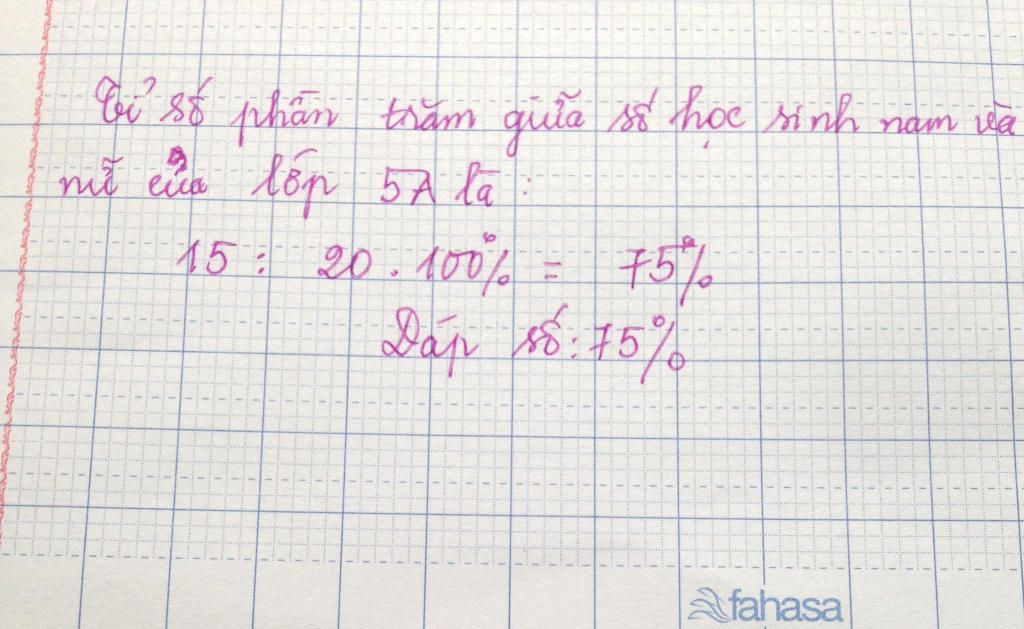 Tỉ số phần trăm giữa số học sinh nam và
nữ của lớp 5A là :
15 : 20 . 100% = 75%
Đáp số : 75%
fahasa